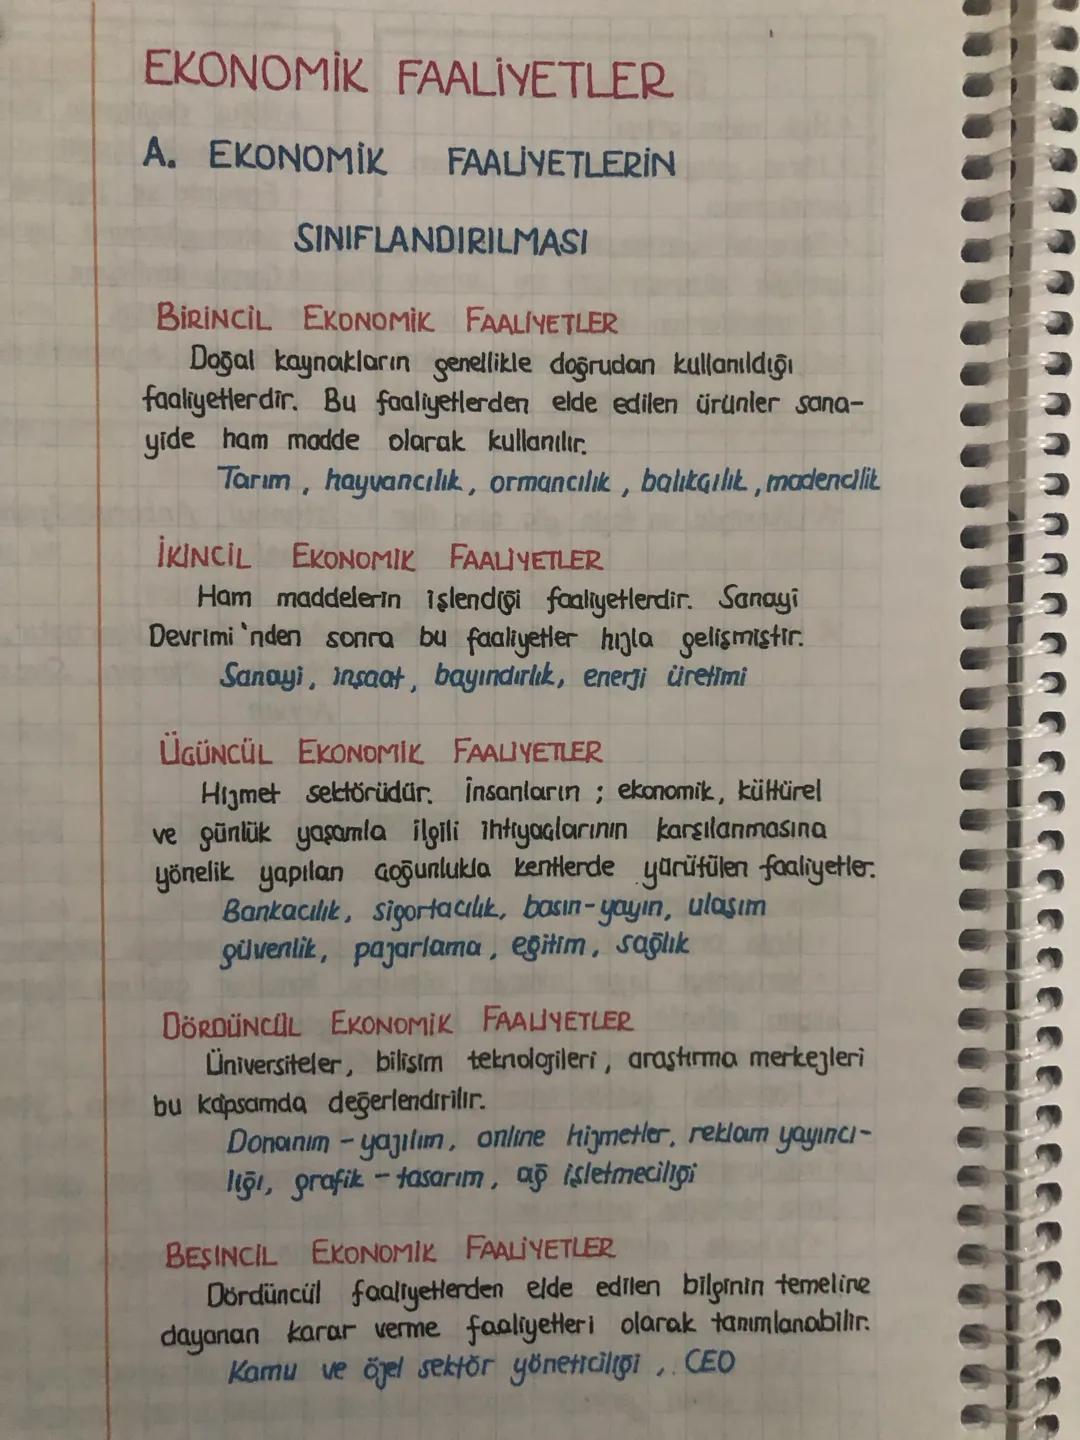 EKONOMİK FAALİYETLER
A. EKONOMİK FAALİYETLERİN
SINIFLANDIRILMASI
BİRİNCİL EKONOMİK FAALİYETLER
Doğal kaynakların genellikle doğrudan kullanıldığı
faaliyetlerdir. Bu faaliyetlerden elde edilen ürünler sana-
yide ham madde olarak kullanılır.
Tarım, hayvancılık, ormancılık, balıkçılık, madencilik
İKİNCİL EKONOMİK FAALİYETLER
Ham maddelerin işlendiği faaliyetlerdir. Sanayi
Devrimi'nden sonra bu faaliyetler hızla gelişmiştir.
Sanayi, inşaat, bayındırlık, enerji üretimi
ÜÇÜNCÜL EKONOMİK FAALİYETLER
Hizmet sektörüdür. İnsanların ; ekonomik, kültürel
ve günlük yaşamla ilgili ihtiyaçlarının karşılanmasına
yönelik yapılan çoğunlukla kentlerde yürütülen faaliyetler.
Bankacılık, sigortacılık, basın-yayın, ulaşım
güvenlik, pazarlama, eğitim, sağlık
DÖRDÜNCÜL EKONOMİK FAALİYETLER
Üniversiteler, bilişim teknolojileri, araştırma merkezleri
bu kapsamda değerlendirilir.
Donanım - yazılım, online hizmetler, reklam yayıncı-
lığı, grafik - tasarım, ağ işletmeciliği
BEŞİNCİL EKONOMİK FAALİYETLER
Dördüncül faaliyetlerden elde edilen bilginin temeline
dayanan karar verme faaliyetleri olarak tanımlanabilir.
Kamu ve özel sektör yöneticiliği, CEO